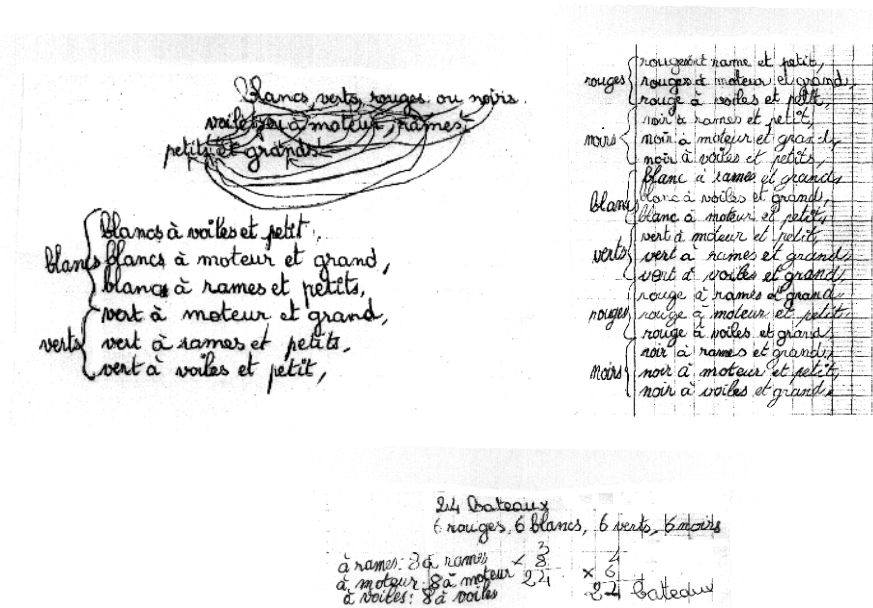 blancs, verts, rouges ou noirs
voiles, ou à moteur, rames,
petits et grands
blancs à voiles et petit,
blancs blancs à moteur et grand,
blancs à rames et petits,
vert à moteur et grand,
verts vert à rames et petits,
vert à voiles et petit,
rouges et rame et petit,
rouges rouges à moteur et grand,
rouge à voiles et petit,
noir à rames et petit,
noirs noir à moteur et grand,
noir à voiles et petits,
blanc à rames et grands
blancs blanc à voiles et grand,
blanc à moteur et petits,
vert à moteur et petit,
verts vert à rames et grand,
vert à voiles et grand,
rouge à rames et grand
rouges rouge à moteur et petit.
rouge à voiles et grand
noir à rames et grand,
noirs noir à moteur et petit,
noir à voiles et grand.
24 bateaux
6 rouges, 6 blancs, 6 verts, 6 noirs
3 4
à rames: 8 à rames × 8 × 6
à moteur: 8 à moteur 24 24 bateaux
à voiles: 8 à voiles